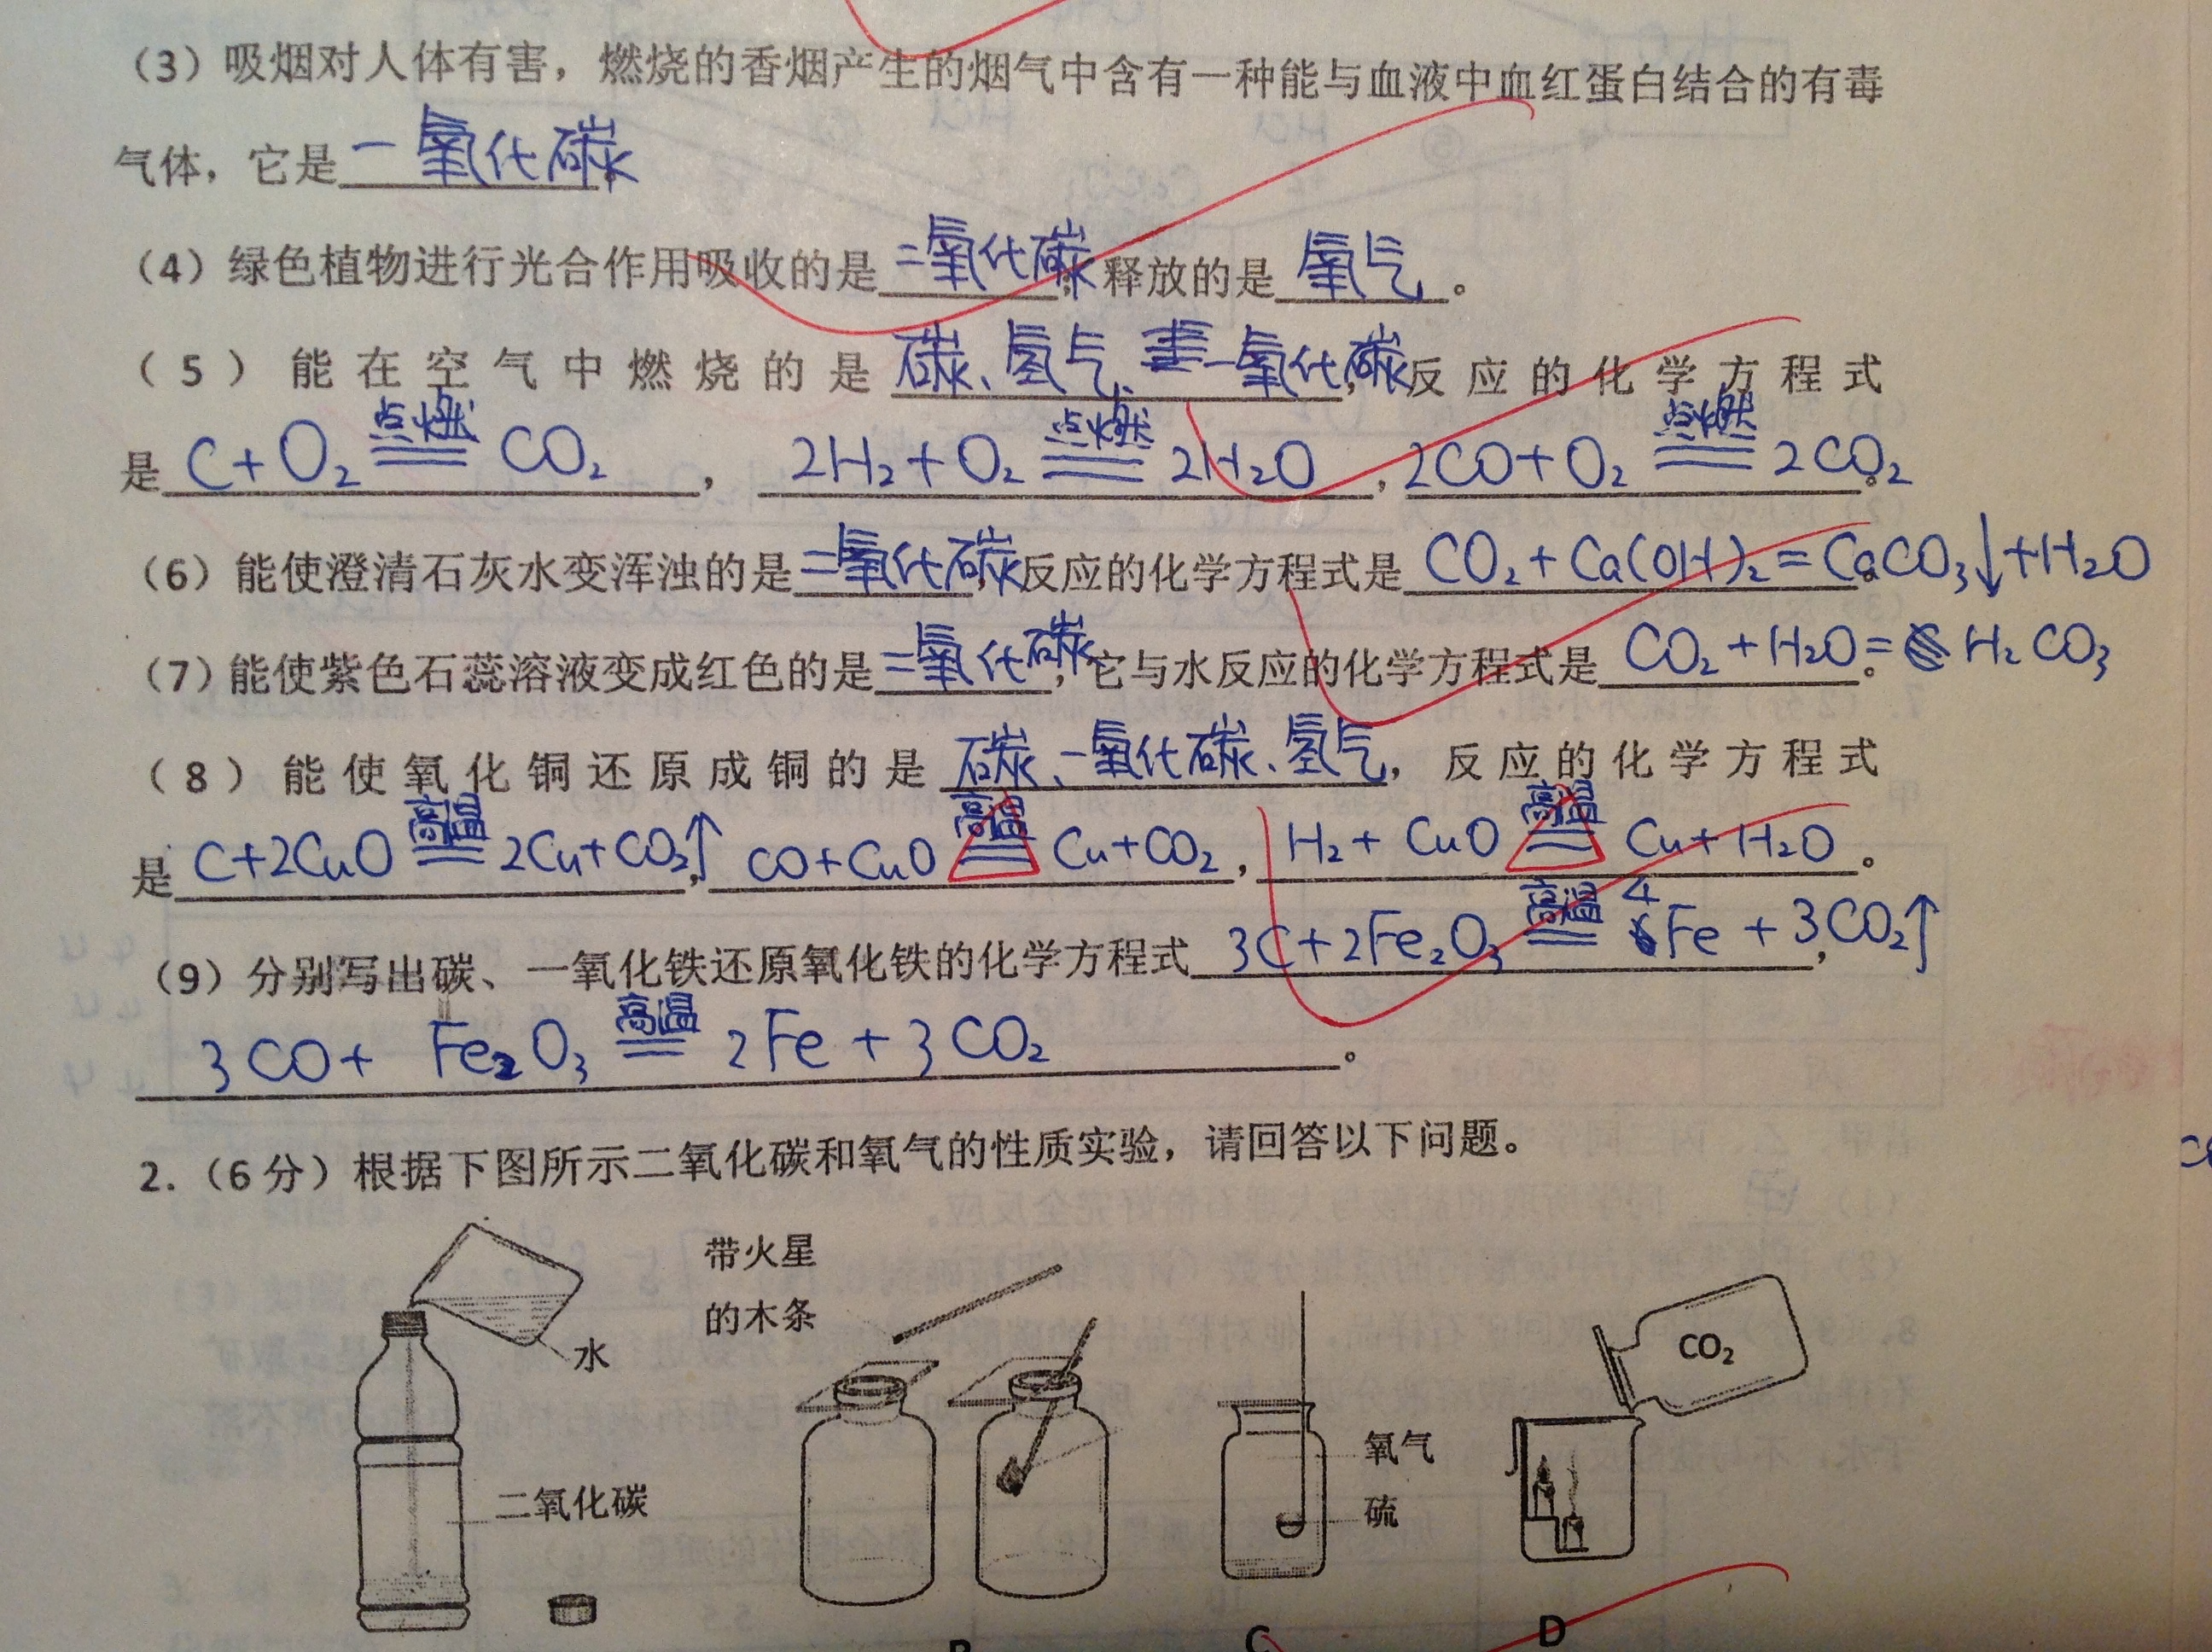 （3）吸烟对人体有害，燃烧的香烟产生的烟气中含有一种能与血液中血红蛋白结合的有毒
气体，它是一氧化碳。
（4）绿色植物进行光合作用吸收的是二氧化碳，释放的是氧气。
（5）能在空气中燃烧的是碳、氢气、一氧化碳，反应的化学方程式
点燃 点燃 点燃
是 C+O₂══CO₂，2H₂+O₂══2H₂O，2CO+O₂══2CO₂。
（6）能使澄清石灰水变浑浊的是二氧化碳，反应的化学方程式是 CO₂+Ca(OH)₂=CaCO₃↓+H₂O
（7）能使紫色石蕊溶液变成红色的是二氧化碳，它与水反应的化学方程式是 CO₂+H₂O=H₂CO₃。
（8）能使氧化铜还原成铜的是碳、一氧化碳、氢气，反应的化学方程式
高温 高温 高温
是 C+2CuO══2Cu+CO₂↑，CO+CuO══Cu+CO₂，H₂+CuO══Cu+H₂O。
高温 4
（9）分别写出碳、一氧化铁还原氧化铁的化学方程式 3C+2Fe₂O₃══Fe+3CO₂↑，
高温
3CO+Fe₂O₃══2Fe+3CO₂。
2.（6分）根据下图所示二氧化碳和氧气的性质实验，请回答以下问题。
带火星
的木条
水
CO₂
氧气
二氧化碳
硫
B C D